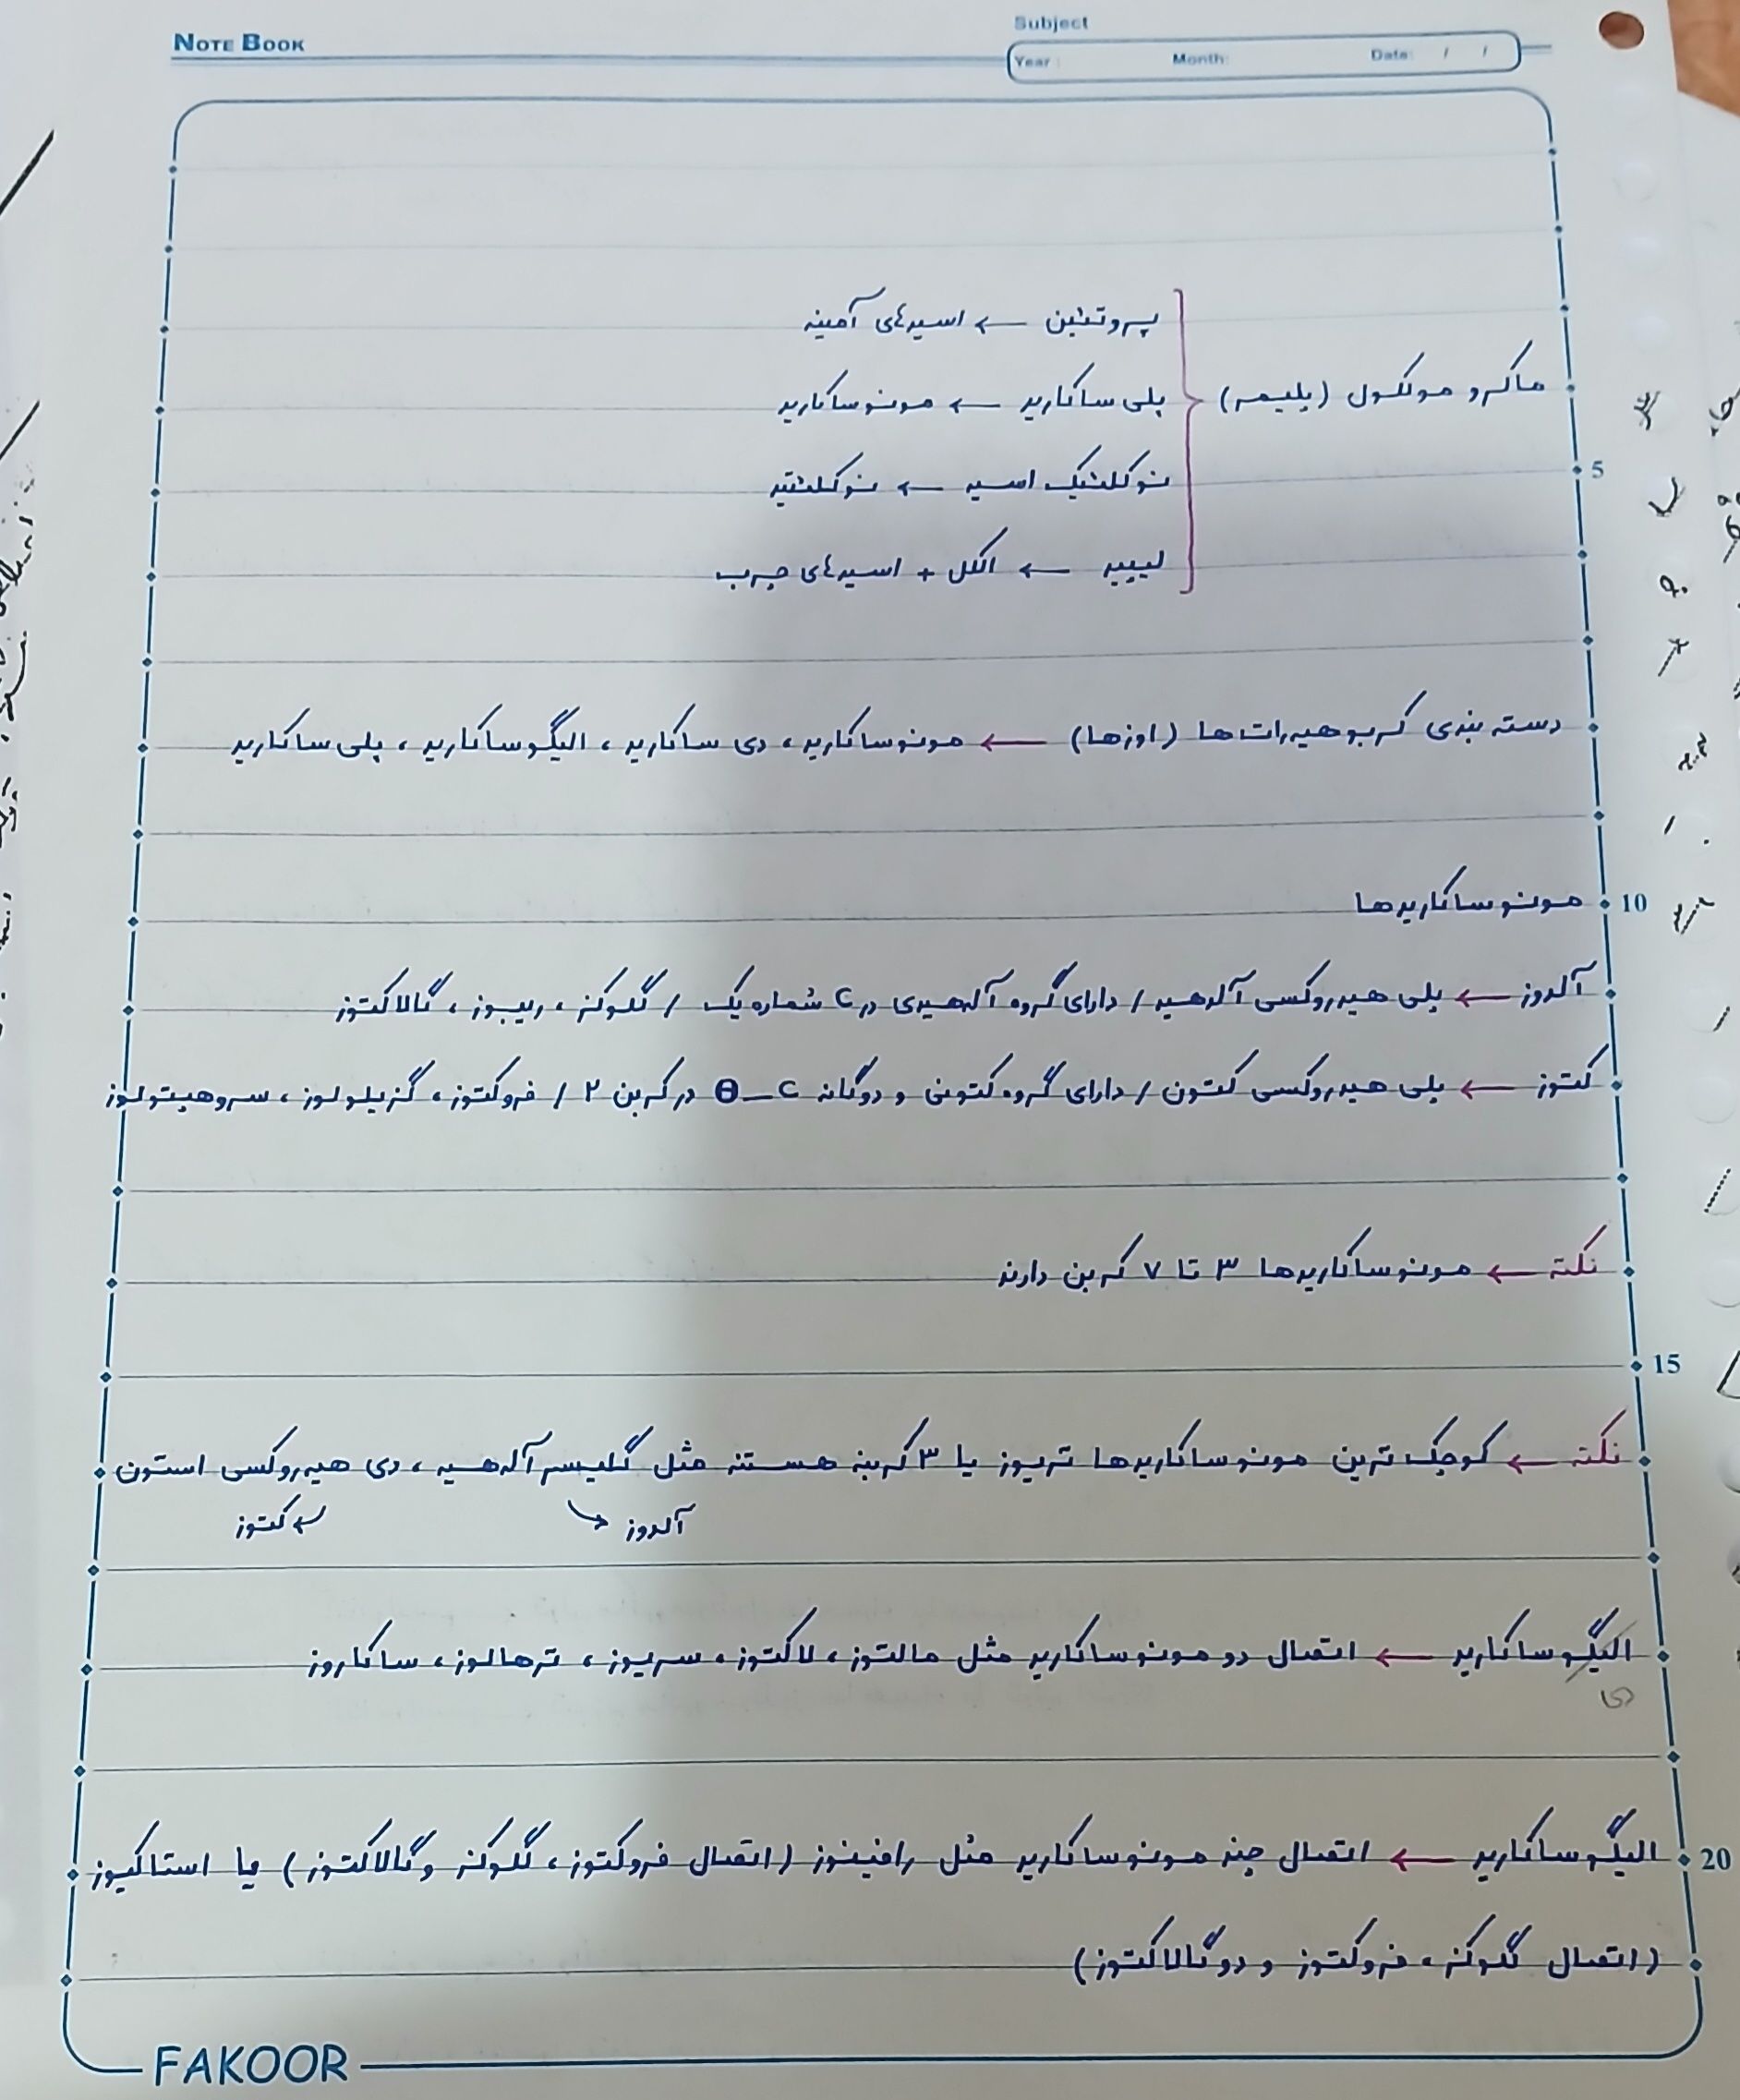 NOTE BOOK
Subject
Year : Month: Date: / /
ماکرو مولکول (پلیمر)
پروتئین ← اسیدهای آمینه
پلی ساکارید ← مونوساکارید
نوکلئیک اسید ← نوکلئتید
لیپید ← الکل + اسیدهای چرب
5
دسته بندی کربوهیدرات ها (اوزها) ← مونوساکارید ، دی ساکارید ، الیگوساکارید ، پلی ساکارید
مونوساکاریدها
10
آلدوز ← پلی هیدروکسی آلدهید / دارای گروه آلدهیدی در C شماره یک / گلوکز ، ریبوز ، گالاکتوز
کتوز ← پلی هیدروکسی کتون / دارای گروه کتونی و دوگانه C_O در کربن ۲ / فروکتوز ، گزیلولوز ، سدوهپتولوز
نکته ← مونوساکاریدها ۳ تا ۷ کربن دارند
15
نکته ← کوچک ترین مونوساکاریدها تریوز یا ۳ کربنه هستند مثل گلیسرآلدهید ، دی هیدروکسی استون
آلدوز ← کتوز
الیگوساکارید ← اتصال دو مونوساکارید مثل مالتوز ، لاکتوز ، سربوز ، ترهالوز ، ساکاروز
دی
الیگوساکارید ← اتصال چند مونوساکارید مثل رافینوز (اتصال فروکتوز ، گلوکز و گالاکتوز) یا استاکیوز
20
(اتصال گلوکز ، فروکتوز و دو گالاکتوز)
FAKOOR